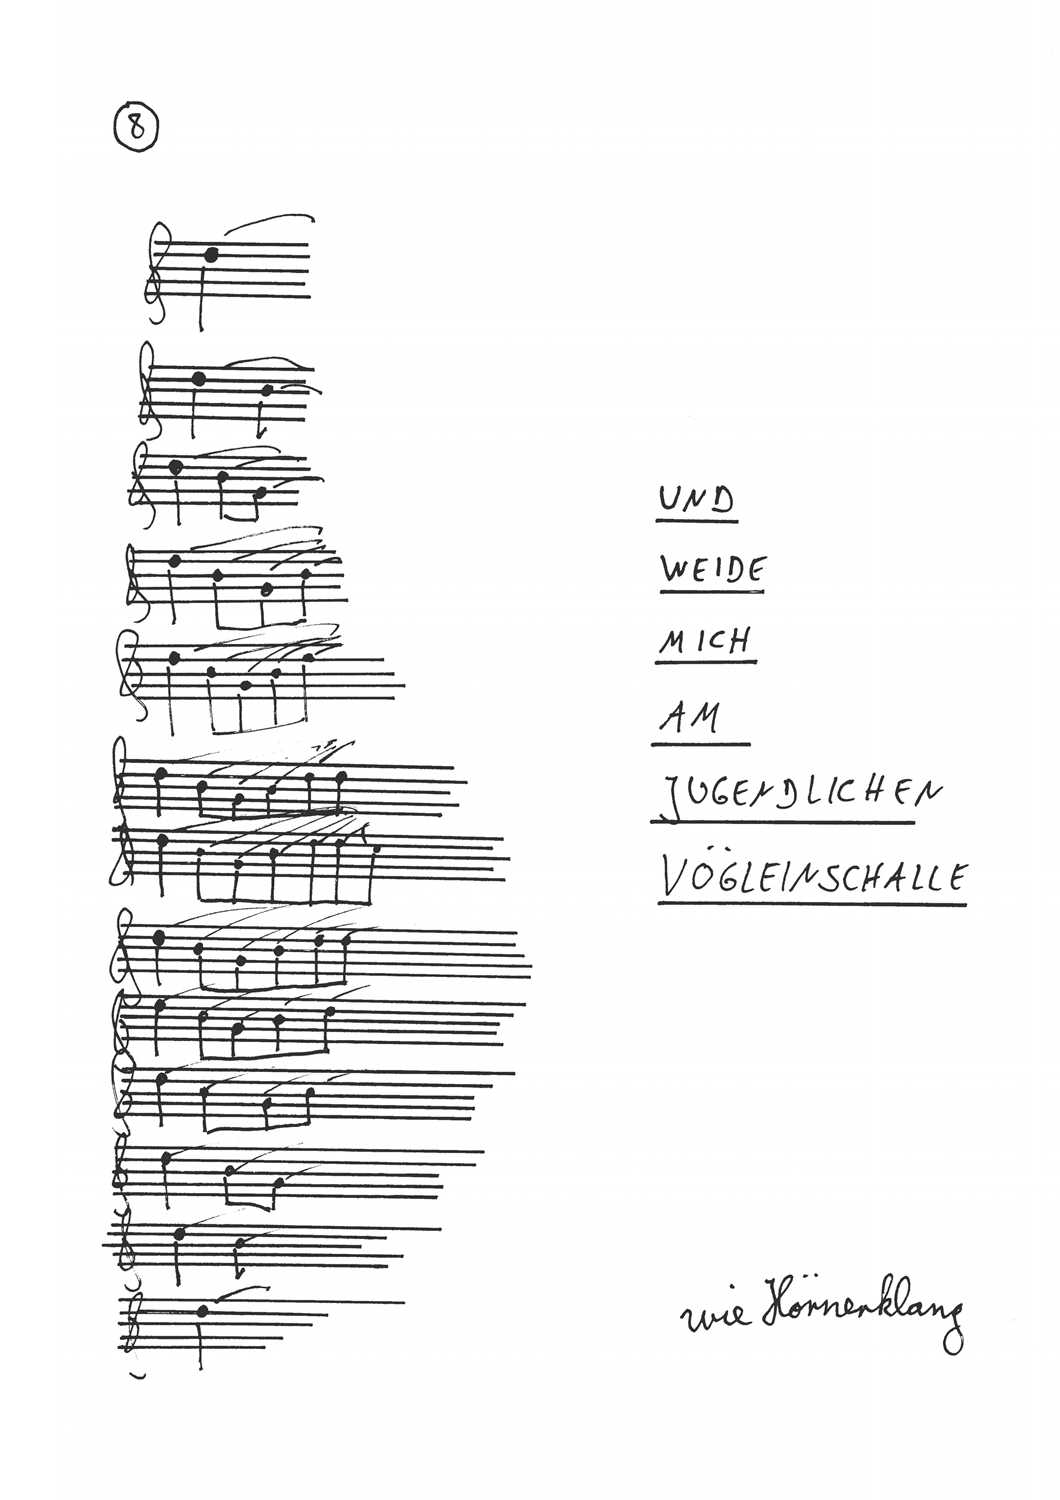 8
UND
WEIDE
MICH
AM
JUGENDLICHEN
VÖGLEINSCHALLE
wie Hörnerklang